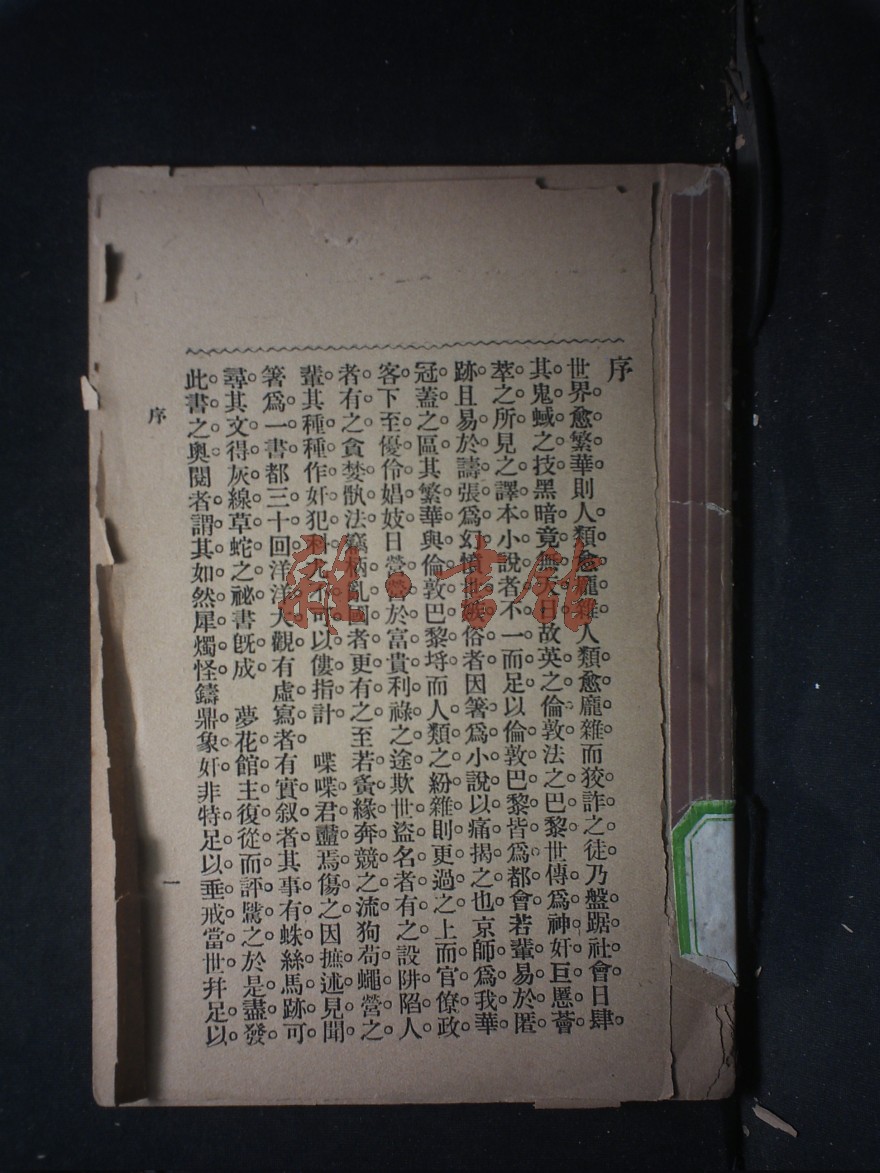 序
世界愈繁華則人類愈龐雜人類愈龐雜而狡詐之徒乃盤踞社會日肆。
其鬼蜮之技黑暗竟無天日。故英之倫敦法之巴黎世傳爲神奸巨慝薈
萃之所見之譯本小說者不一而足以倫敦巴黎皆爲都會若輩易於匿
跡。且易於譸張爲幻憤世嫉俗者因箸爲小說以痛揭之也。京師爲我華
冠蓋之區。其繁華與倫敦巴黎埒。而人類之紛雜則更過之上而官僚政
客下至優伶娼妓日營營於富貴利祿之途欺世盜名者有之設阱陷人
者有之。貪婪骫法竊柄亂國者更有之。至若夤緣奔競之流狗苟蠅營之
輩其種種作奸犯科尤不可以僂指計 喋喋君蠱焉傷之因摭述見聞
箸爲一書都三十回洋洋大觀有虛寫者有實叙者其事有蛛絲馬跡可
尋其文得灰線草蛇之祕書旣成 夢花館主復從而評騭之於是盡發
此書之奧閱者謂其如然犀燭怪鑄鼎象奸非特足以垂戒當世幷足以
序
一
雜·書館